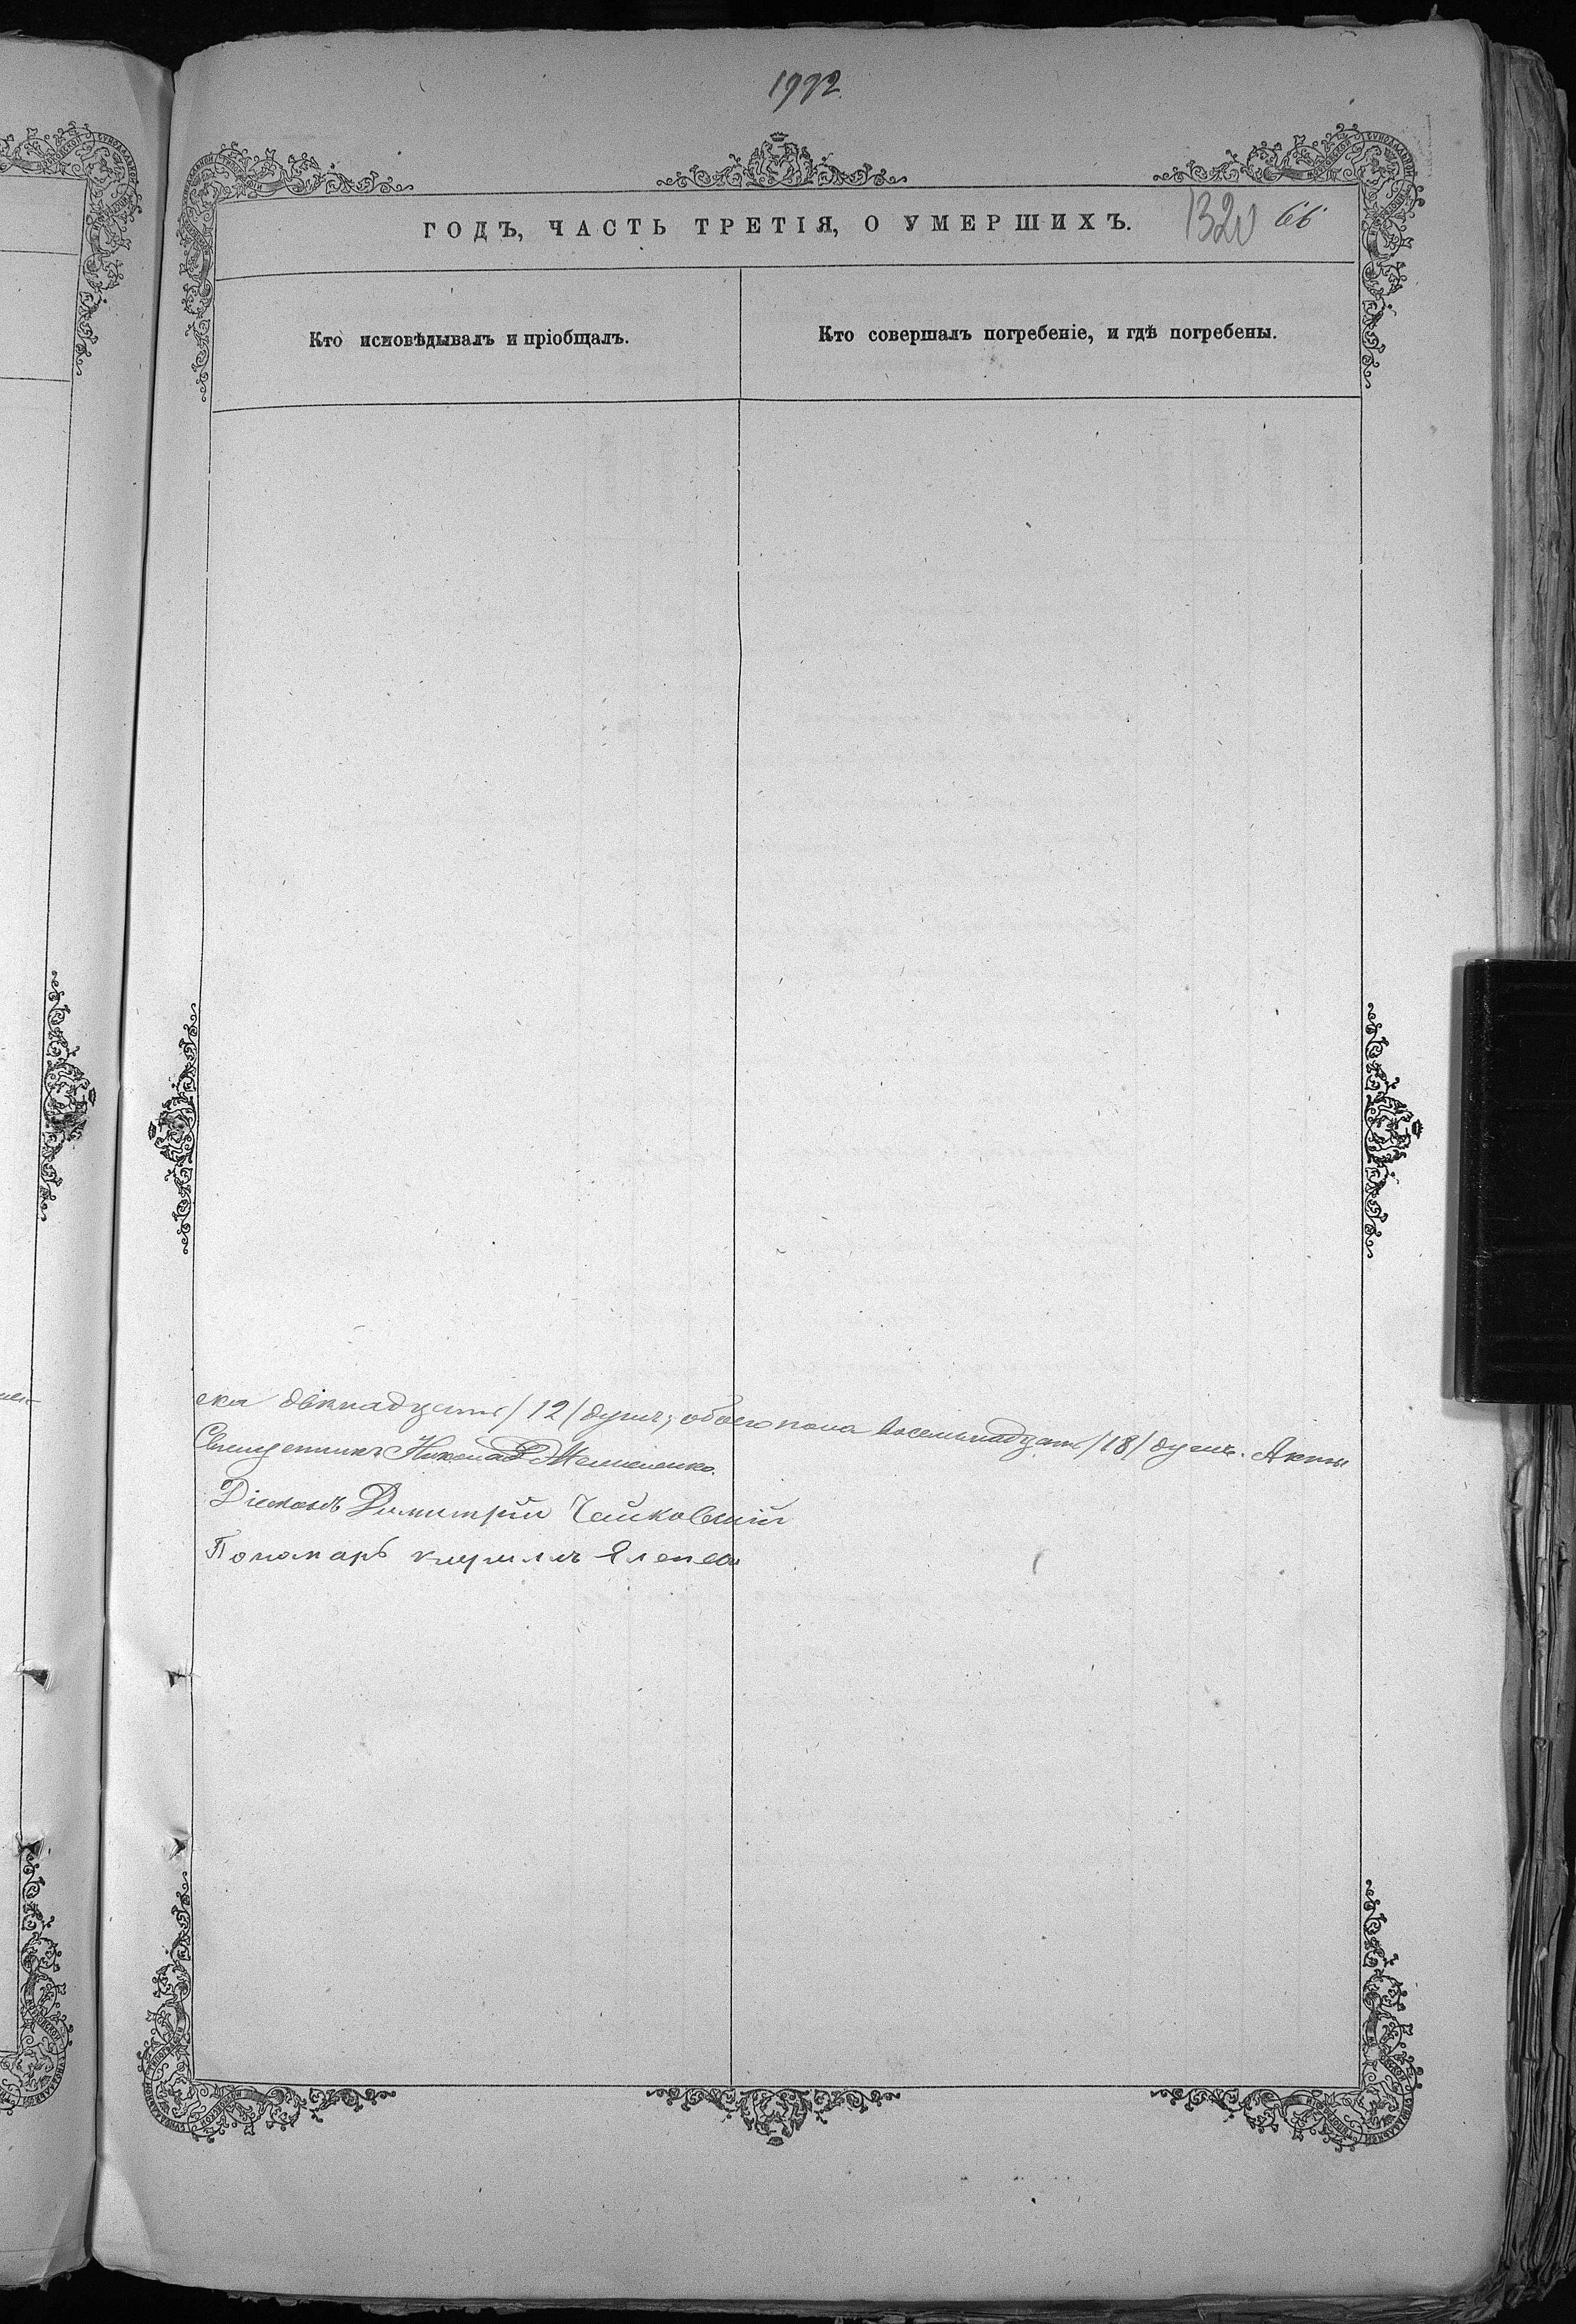 1992
ГОДЪ, ЧАСТЬ ТРЕТІЯ, О УМЕРШИХЪ.
1320 66
Кто исповѣдывалъ и пріобщалъ.
Кто совершалъ погребеніе, и гдѣ погребены.
ска двѣнадцать /12/ душъ, обоего пола восемьнадцать /18/ душъ. Акты
Священникъ Николай
Діаконъ Димитрій Чайковскій
Пономарь Кириллъ